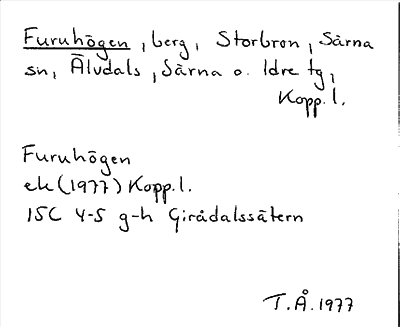 Furuhögen, berg, Storbron, Särna
sn, Älvdals, Särna o. Idre tg,
Kopp. l.
Furuhögen
ek (1977) Kopp. l.
15C 4-5 g-h Girådalssätern
T.Å. 1977